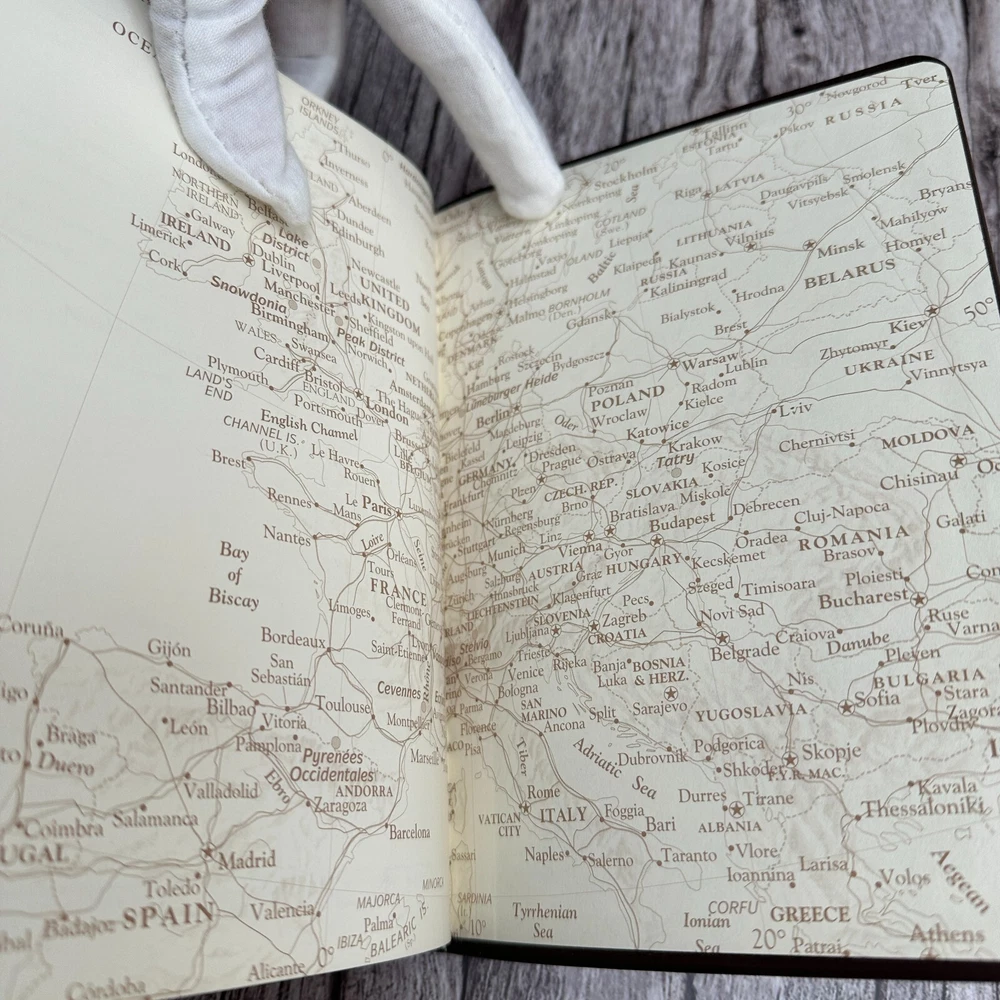 ORKNEY
ISLANDS
Thurso
Inverness
0°
Aberdeen
Dundee
Edinburgh
NORTHERN
IRELAND
Lake
District
Galway
IRELAND
Limerick
Dublin
Cork
Newcastle
Liverpool
Leeds
UNITED
KINGDOM
Manchester
Snowdonia
Sheffield
Birmingham
Peak District
WALES
Norwich
Swansea
Cardiff
Bristol
ENGLAND
Plymouth
London
LAND'S
END
Portsmouth
Dover
English Channel
CHANNEL IS.
(U.K.)
Le Havre
Brest
Rouen
Rennes
Le
Mans
Paris
Nantes
Loire
Orléans
Seine
Tours
FRANCE
Bay
of
Biscay
Limoges
Clermont-
Ferrand
Saint-Étienne
Bordeaux
Coruña
Gijón
San
Sebastián
Cevennes
Rhône
Santander
Bilbao
Toulouse
León
Vitoria
Braga
Pamplona
Pyrenées
Occidentales
Duero
ANDORRA
Valladolid
Ebro
Zaragoza
Coimbra
Salamanca
Barcelona
Madrid
Toledo
SPAIN
Valencia
MAJORCA
Palma
IBIZA
BALEARIC IS
0°
Alicante
Córdoba
Novgorod
Tver
30°
RUSSIA
Pskov
Tallinn
ESTONIA
Tartu
20°
Stockholm
Norrkoping
Riga
LATVIA
Smolensk
Daugavpils
Vitsyebsk
Bryans
GOTLAND
(Swe.)
Liepaja
LITHUANIA
Mahilyow
Baltic
Sea
Klaipeda
Kaunas
Vilnius
Minsk
Homyel
RUSSIA
Kaliningrad
BELARUS
Helsingborg
Malmo
BORNHOLM
(Den.)
Hrodna
Gdansk
Bialystok
Brest
Kiev
50°
Rostock
Szczecin
Bydgoszcz
Warsaw
Zhytomyr
Hamburg
Lublin
UKRAINE
Lüneburger Heide
Poznan
Radom
Vinnytsya
Berlin
POLAND
Kielce
Magdeburg
Oder
Wroclaw
Lviv
Leipzig
Katowice
Dresden
Krakow
Chernivtsi
MOLDOVA
GERMANY
Prague
Ostrava
Tatry
Kosice
Chemnitz
Chisinau
Plzen
CZECH. REP.
SLOVAKIA
Brno
Miskolc
Nürnberg
Bratislava
Debrecen
Cluj-Napoca
Galati
Regensburg
Budapest
Stuttgart
Munich
Linz
Vienna
Oradea
ROMANIA
Gyor
Kecskemet
Brasov
Salzburg
AUSTRIA
HUNGARY
Innsbruck
Graz
Szeged
Timisoara
Ploiesti
LIECHTENSTEIN
Klagenfurt
Pecs
Bucharest
SLOVENIA
Zagreb
Novi Sad
Ruse
Ljubljana
CROATIA
Craiova
Danube
Varna
Stelvio
Bergamo
Trieste
Rijeka
Banja
Luka
BOSNIA
& HERZ.
Belgrade
Pleven
Verona
Venice
Nis
BULGARIA
Bologna
Sarajevo
Sofia
Stara
Zagora
Parma
SAN
MARINO
Split
YUGOSLAVIA
Plovdiv
Florence
Ancona
Pisa
Tiber
Adriatic
Sea
Dubrovnik
Podgorica
Skopje
Shkoder
F.Y.R. MAC.
Rome
Durres
Tirane
Kavala
VATICAN
CITY
ITALY
Foggia
Thessaloniki
Bari
ALBANIA
Naples
Salerno
Taranto
Vlore
Larisa
Ioannina
Volos
Aegean
SARDINIA
(It.)
10°
Tyrrhenian
Sea
Ionian
Sea
CORFU
GREECE
20°
Patrai
Athens